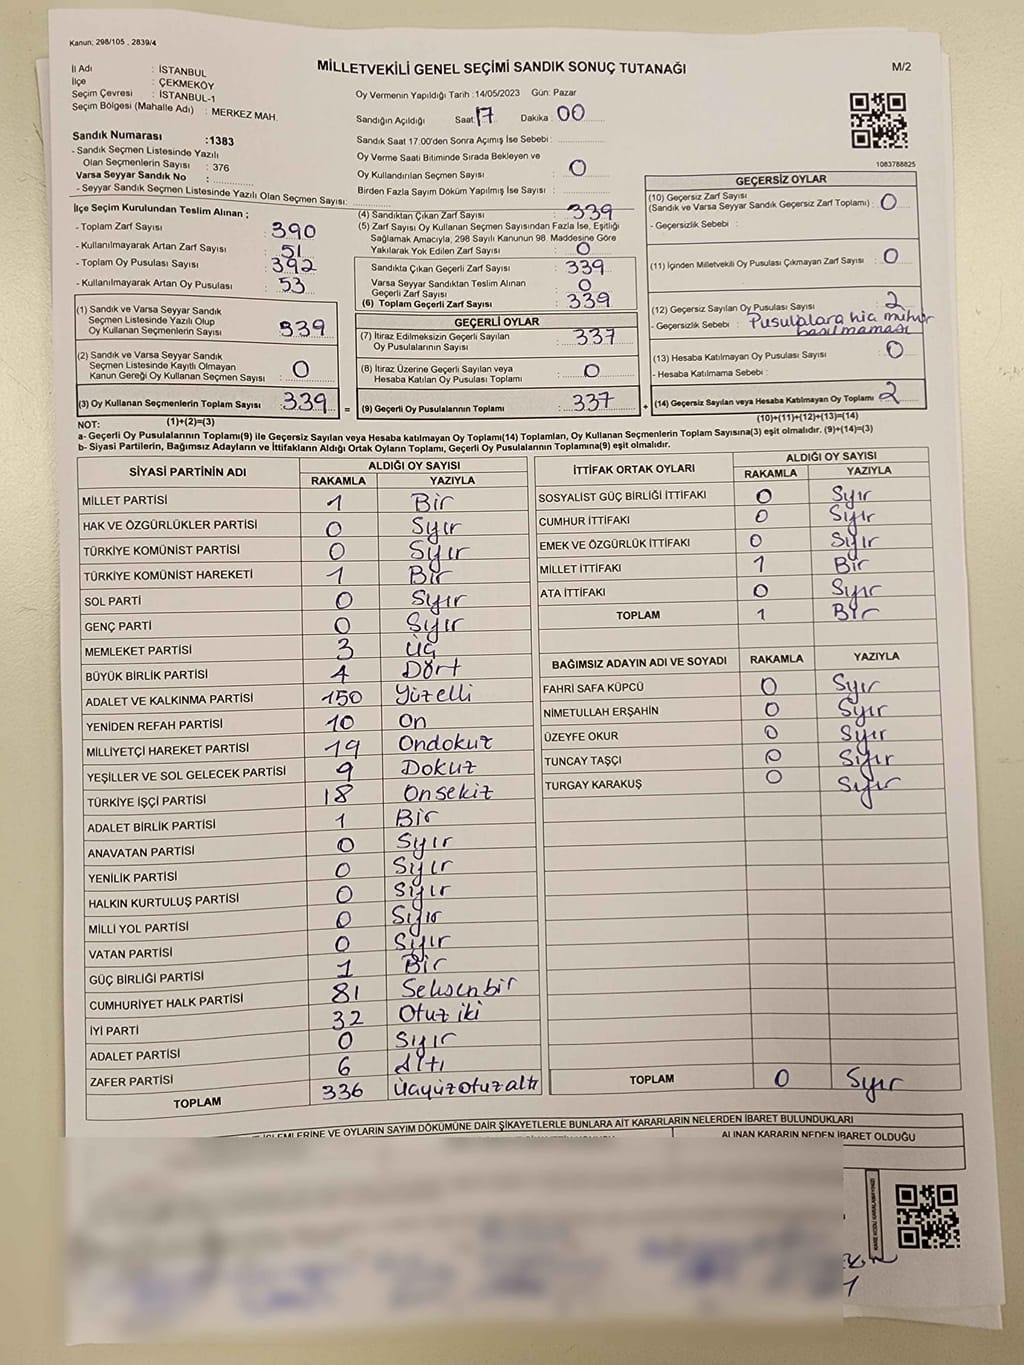 Kanun: 298/105 , 2839/4
MİLLETVEKİLİ GENEL SEÇİMİ SANDIK SONUÇ TUTANAĞI
M/2
İl Adı : İSTANBUL
İlçe : ÇEKMEKÖY
Seçim Çevresi : İSTANBUL-1
Seçim Bölgesi (Mahalle Adı) : MERKEZ MAH.
Sandık Numarası :1383
- Sandık Seçmen Listesinde Yazılı
Olan Seçmenlerin Sayısı : 376
Varsa Seyyar Sandık No :
- Seyyar Sandık Seçmen Listesinde Yazılı Olan Seçmen Sayısı:
Oy Vermenin Yapıldığı Tarih :14/05/2023 Gün: Pazar
Sandığın Açıldığı Saat: 17 Dakika : 00
Sandık Saat 17.00'den Sonra Açımış İse Sebebi :
Oy Verme Saati Bitiminde Sırada Bekleyen ve
Oy Kullandırılan Seçmen Sayısı : 0
Birden Fazla Sayım Döküm Yapılmış İse Sayısı :
1083788825
İlçe Seçim Kurulundan Teslim Alınan ;
- Toplam Zarf Sayısı : 390
- Kullanılmayarak Artan Zarf Sayısı : 51
- Toplam Oy Pusulası Sayısı : 392
- Kullanılmayarak Artan Oy Pusulası : 53
(1) Sandık ve Varsa Seyyar Sandık
Seçmen Listesinde Yazılı Olup
Oy Kullanan Seçmenlerin Sayısı : 339
(2) Sandık ve Varsa Seyyar Sandık
Seçmen Listesinde Kayıtlı Olmayan
Kanun Gereği Oy Kullanan Seçmen Sayısı : 0
(3) Oy Kullanan Seçmenlerin Toplam Sayısı : 339 =
(4) Sandıktan Çıkan Zarf Sayısı : 339
(5) Zarf Sayısı Oy Kullanan Seçmen Sayısından Fazla İse, Eşitliği
Sağlamak Amacıyla, 298 Sayılı Kanunun 98. Maddesine Göre
Yakılarak Yok Edilen Zarf Sayısı : 0
Sandıkta Çıkan Geçerli Zarf Sayısı : 339
Varsa Seyyar Sandıktan Teslim Alınan
Geçerli Zarf Sayısı : 0
(6) Toplam Geçerli Zarf Sayısı : 339
GEÇERLİ OYLAR
(7) İtiraz Edilmeksizin Geçerli Sayılan
Oy Pusulalarının Sayısı : 337
(8) İtiraz Üzerine Geçerli Sayılan veya
Hesaba Katılan Oy Pusulası Toplamı : 0
(9) Geçerli Oy Pusulalarının Toplamı : 337 +
GEÇERSİZ OYLAR
(10) Geçersiz Zarf Sayısı
(Sandık ve Varsa Seyyar Sandık Geçersiz Zarf Toplamı) : 0
- Geçersizlik Sebebi :
(11) İçinden Milletvekili Oy Pusulası Çıkmayan Zarf Sayısı : 0
(12) Geçersiz Sayılan Oy Pusulası Sayısı : 2
- Geçersizlik Sebebi : Pusulalara hiç mühür
basılmaması
(13) Hesaba Katılmayan Oy Pusulası Sayısı : 0
- Hesaba Katılmama Sebebi :
(14) Geçersiz Sayılan veya Hesaba Katılmayan Oy Toplamı : 2
NOT: (1)+(2)=(3) (10)+(11)+(12)+(13)=(14)
a- Geçerli Oy Pusulalarının Toplamı(9) ile Geçersiz Sayılan veya Hesaba katılmayan Oy Toplamı(14) Toplamları, Oy Kullanan Seçmenlerin Toplam Sayısına(3) eşit olmalıdır. (9)+(14)=(3)
b- Siyasi Partilerin, Bağımsız Adayların ve İttifakların Aldığı Ortak Oyların Toplamı, Geçerli Oy Pusulalarının Toplamına(9) eşit olmalıdır.
SİYASİ PARTİNİN ADI ALDIĞI OY SAYISI
RAKAMLA YAZIYLA
MİLLET PARTİSİ 1 Bir
HAK VE ÖZGÜRLÜKLER PARTİSİ 0 Sıfır
TÜRKİYE KOMÜNİST PARTİSİ 0 Sıfır
TÜRKİYE KOMÜNİST HAREKETİ 1 Bir
SOL PARTİ 0 Sıfır
GENÇ PARTİ 0 Sıfır
MEMLEKET PARTİSİ 3 Üç
BÜYÜK BİRLİK PARTİSİ 4 Dört
ADALET VE KALKINMA PARTİSİ 150 Yüzelli
YENİDEN REFAH PARTİSİ 10 On
MİLLİYETÇİ HAREKET PARTİSİ 19 Ondokuz
YEŞİLLER VE SOL GELECEK PARTİSİ 9 Dokuz
TÜRKİYE İŞÇİ PARTİSİ 18 Onsekiz
ADALET BİRLİK PARTİSİ 1 Bir
ANAVATAN PARTİSİ 0 Sıfır
YENİLİK PARTİSİ 0 Sıfır
HALKIN KURTULUŞ PARTİSİ 0 Sıfır
MİLLİ YOL PARTİSİ 0 Sıfır
VATAN PARTİSİ 0 Sıfır
GÜÇ BİRLİĞİ PARTİSİ 1 Bir
CUMHURİYET HALK PARTİSİ 81 Seksenbir
İYİ PARTİ 32 Otuz iki
ADALET PARTİSİ 0 Sıfır
ZAFER PARTİSİ 6 Altı
TOPLAM 336 Üçyüzotuzaltı
İTTİFAK ORTAK OYLARI ALDIĞI OY SAYISI
RAKAMLA YAZIYLA
SOSYALİST GÜÇ BİRLİĞİ İTTİFAKI 0 Sıfır
CUMHUR İTTİFAKI 0 Sıfır
EMEK VE ÖZGÜRLÜK İTTİFAKI 0 Sıfır
MİLLET İTTİFAKI 1 Bir
ATA İTTİFAKI 0 Sıfır
TOPLAM 1 Bir
BAĞIMSIZ ADAYIN ADI VE SOYADI RAKAMLA YAZIYLA
FAHRİ SAFA KÜPCÜ 0 Sıfır
NİMETULLAH ERŞAHİN 0 Sıfır
ÜZEYFE OKUR 0 Sıfır
TUNCAY TAŞÇI 0 Sıfır
TURGAY KARAKUŞ 0 Sıfır
TOPLAM 0 Sıfır
İŞLEMLERİNE VE OYLARIN SAYIM DÖKÜMÜNE DAİR ŞİKAYETLERLE BUNLARA AİT KARARLARIN NELERDEN İBARET BULUNDUKLARI
ALINAN KARARIN NEDEN İBARET OLDUĞU